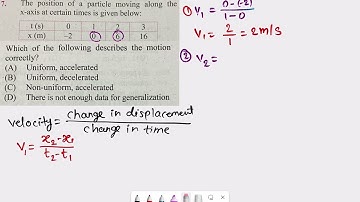 7. The position of a particle moving along the
x-axis at certain times is given below:
t (s) 0 1 2 3
x (m) −2 0 6 16
Which of the following describes the motion
correctly?
(A) Uniform, accelerated
(B) Uniform, decelerated
(C) Non-uniform, accelerated
(D) There is not enough data for generalization
velocity = change in displacement / change in time
V₁ = x₂-x₁ / t₂-t₁
① V₁ = 0-(-2) / 1-0
V₁ = 2/1 = 2m/s
② V₂ =